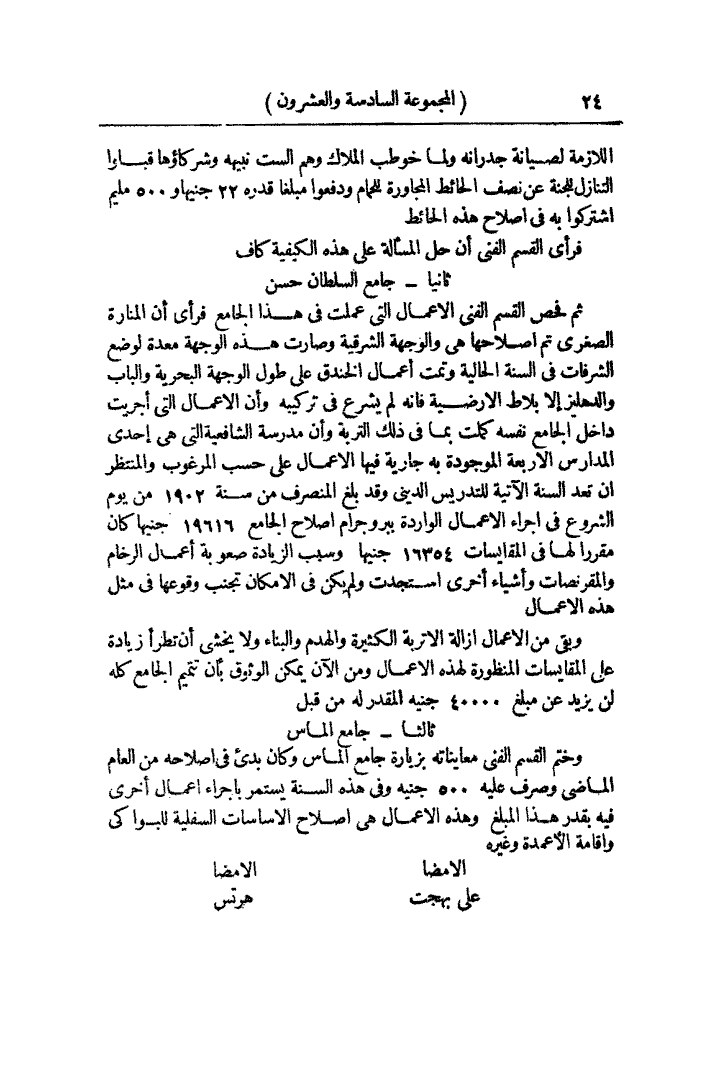 ٢٤ ( المجموعة السادسة والعشرون )
اللازمة لصيانة جدرانه ولما خوطب الملاك وهم الست نبيهه وشركاؤها قبلوا
التنازل للجنة عن نصف الحائط المجاورة للحمام ودفعوا مبلغا قدره ٢٢ جنيها و ٥٠٠ مليم
اشتركوا به فى اصلاح هذه الحائط
فرأى القسم الفنى أن حل المسألة على هذه الكيفية كاف
ثانيا ــ جامع السلطان حسن
ثم فحص القسم الفنى الاعمال التى عملت فى هذا الجامع فرأى أن المنارة
الصغرى تم اصلاحها هى والوجهة الشرقية وصارت هذه الوجهة معدة لوضع
الشرفات فى السنة الحالية وتمت أعمال الخندق على طول الوجهة البحرية والباب
والدهليز إلا بلاط الارضية فانه لم يشرع فى تركيبه وأن الاعمال التى أجريت
داخل الجامع نفسه كملت بما فى ذلك التربة وأن مدرسة الشافعية التى هى إحدى
المدارس الاربعة الموجودة به جارية فيها الاعمال على حسب المرغوب والمنتظر
ان تعد السنة الآتية للتدريس الدينى وقد بلغ المنصرف من سنة ١٩٠٢ من يوم
الشروع فى اجراء الاعمال الواردة ببروجرام اصلاح الجامع ١٩٦١٦ جنيها كان
مقررا لها فى المقايسات ١٦٣٥٤ جنيها وسبب الزيادة صعوبة أعمال الرخام
والمقرنصات وأشياء أخرى استجدت ولم يكن فى الامكان تجنب وقوعها فى مثل
هذه الاعمال
وبقى من الاعمال ازالة الاتربة الكثيرة والهدم والبناء ولا يخشى أن تطرأ زيادة
على المقايسات المنظورة لهذه الاعمال ومن الآن يمكن الوثوق بأن تتميم الجامع كله
لن يزيد عن مبلغ ٤٠٠٠٠ جنيه المقدر له من قبل
ثالثا ــ جامع الماس
وختم القسم الفنى معايناته بزيارة جامع الماس وكان بدئ فى اصلاحه من العام
الماضى وصرف عليه ٥٠٠ جنيه وفى هذه السنة يستمر باجراء اعمال أخرى
فيه بقدر هذا المبلغ وهذه الاعمال هى اصلاح الاساسات السفلية للبواكى
واقامة الأعمدة وغيره
الامضا الامضا
على بهجت هرتس